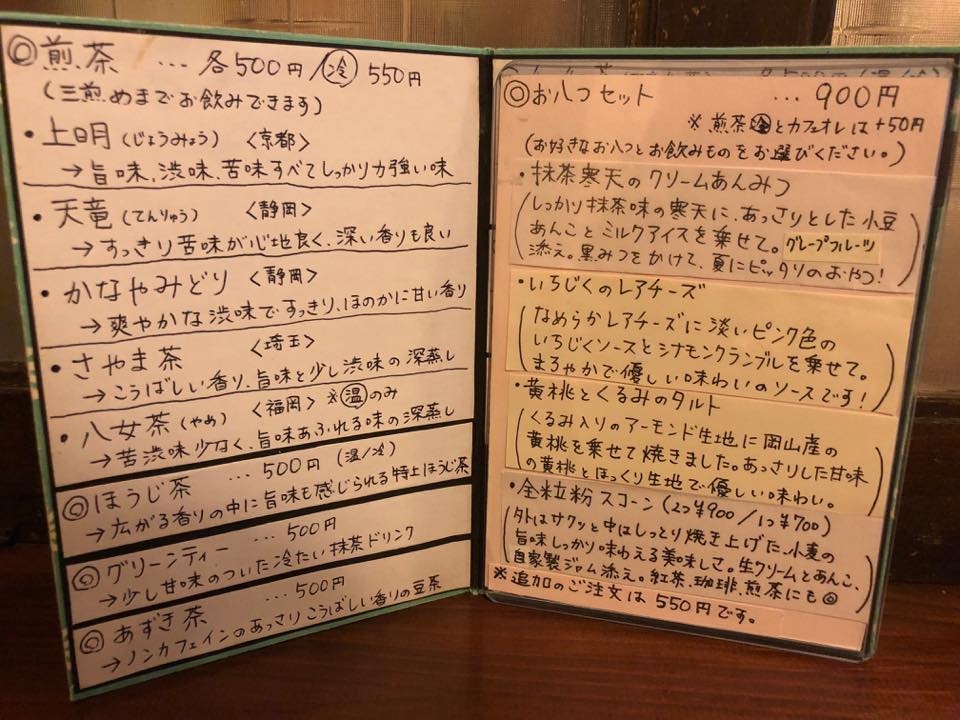 ◎煎茶 … 各500円/冷 550円
(三煎めまでお飲みできます)
・上日月(じょうみょう) 〈京都〉
→旨味、渋味、苦味すべてしっかり力強い味
・天竜(てんりゅう) 〈静岡〉
→すっきり苦味が心地良く、深い香りも良い
・かなやみどり 〈静岡〉
→爽やかな渋味ですっきり、ほのかに甘い香り
・さやま茶 〈埼玉〉
→こうばしい香り、旨味と少し渋味の深蒸し
・八女茶(やめ) 〈福岡〉 ※温のみ
→苦渋味少なく、旨味あふれる味の深蒸し
◎ほうじ茶 … 500円 (温/冷)
→広がる香りの中に旨味も感じられる特上ほうじ茶
◎グリーンティー … 500円
→少し甘味のついた冷たい抹茶ドリンク
◎あずき茶 … 500円
→ノンカフェインのあっさりこうばしい香りの豆茶
◎お八つセット … 900円
※煎茶冷とカフェオレは+50円
(お好きなお八つとお飲みものをお選びください。)
・抹茶寒天のクリームあんみつ
(しっかり抹茶味の寒天に、あっさりとした小豆
あんことミルクアイスを乗せて。グレープフルーツ
添え。黒みつをかけて、夏にピッタリのおやつ!)
・いちじくのレアチーズ
(なめらかレアチーズに淡いピンク色の
いちじくソースとシナモンクランブルを乗せて。
まろやかで優しい味わいのソースです!)
・黄桃とくるみのタルト
(くるみ入りのアーモンド生地に岡山産の
黄桃を乗せて焼きました。あっさりした甘味
の黄桃とほっくり生地で優しい味わい。)
・全粒粉スコーン(2つ¥900/1つ¥700)
(外はサクッと中はしっとり焼き上げた、小麦の
旨味しっかり味わえる美味しさ。生クリームとあんこ、
自家製ジャム添え。紅茶、珈琲、煎茶にも◎)
※追加のご注文は550円です。